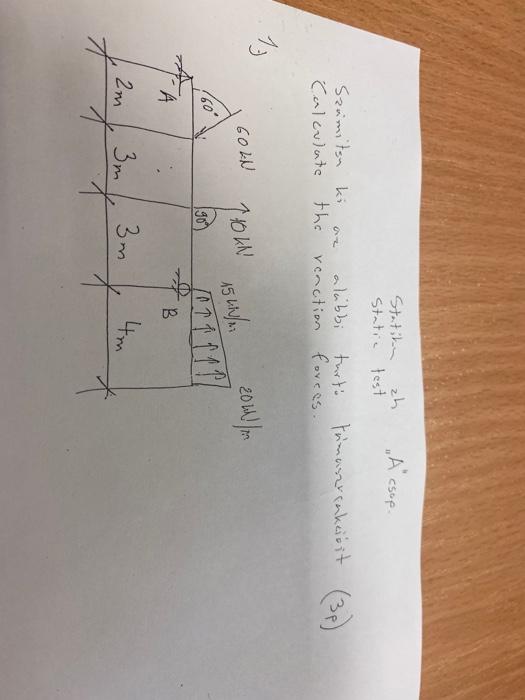 Statika zh „A" csop.
Static test
Számítsa ki az alábbi tartó támaszreakcióit (3p)
Calculate the reaction forces.
1,)
60 kN
10 kN
15 kN/m
20 kN/m
60°
90°
A
B
2m
3m
3m
4m